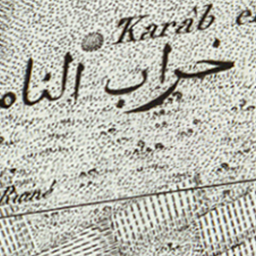 Karâb e
خراب النا
Riané